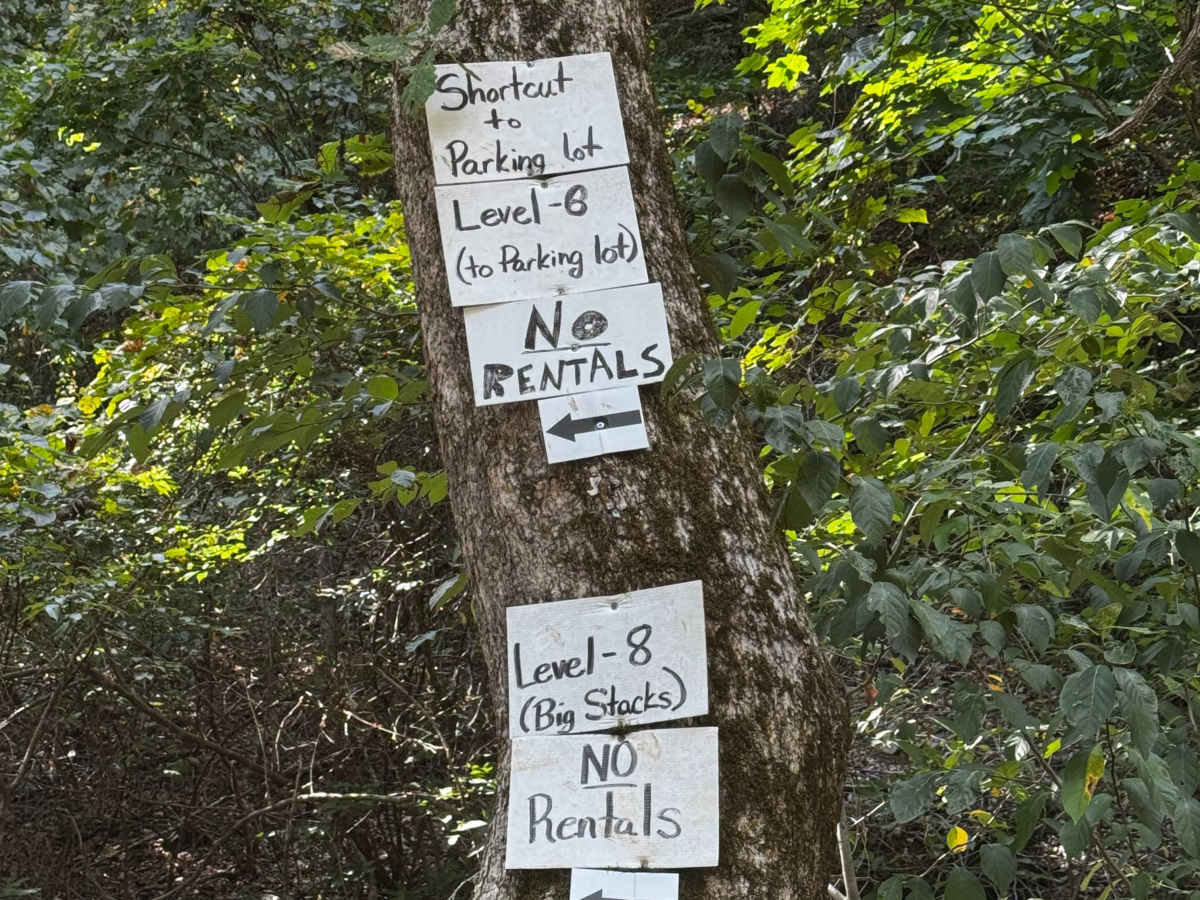 Shortcut
to
Parking lot
Level-6
(to Parking lot)
No
RENTALS
Level-8
(Big Stacks)
NO
Rentals